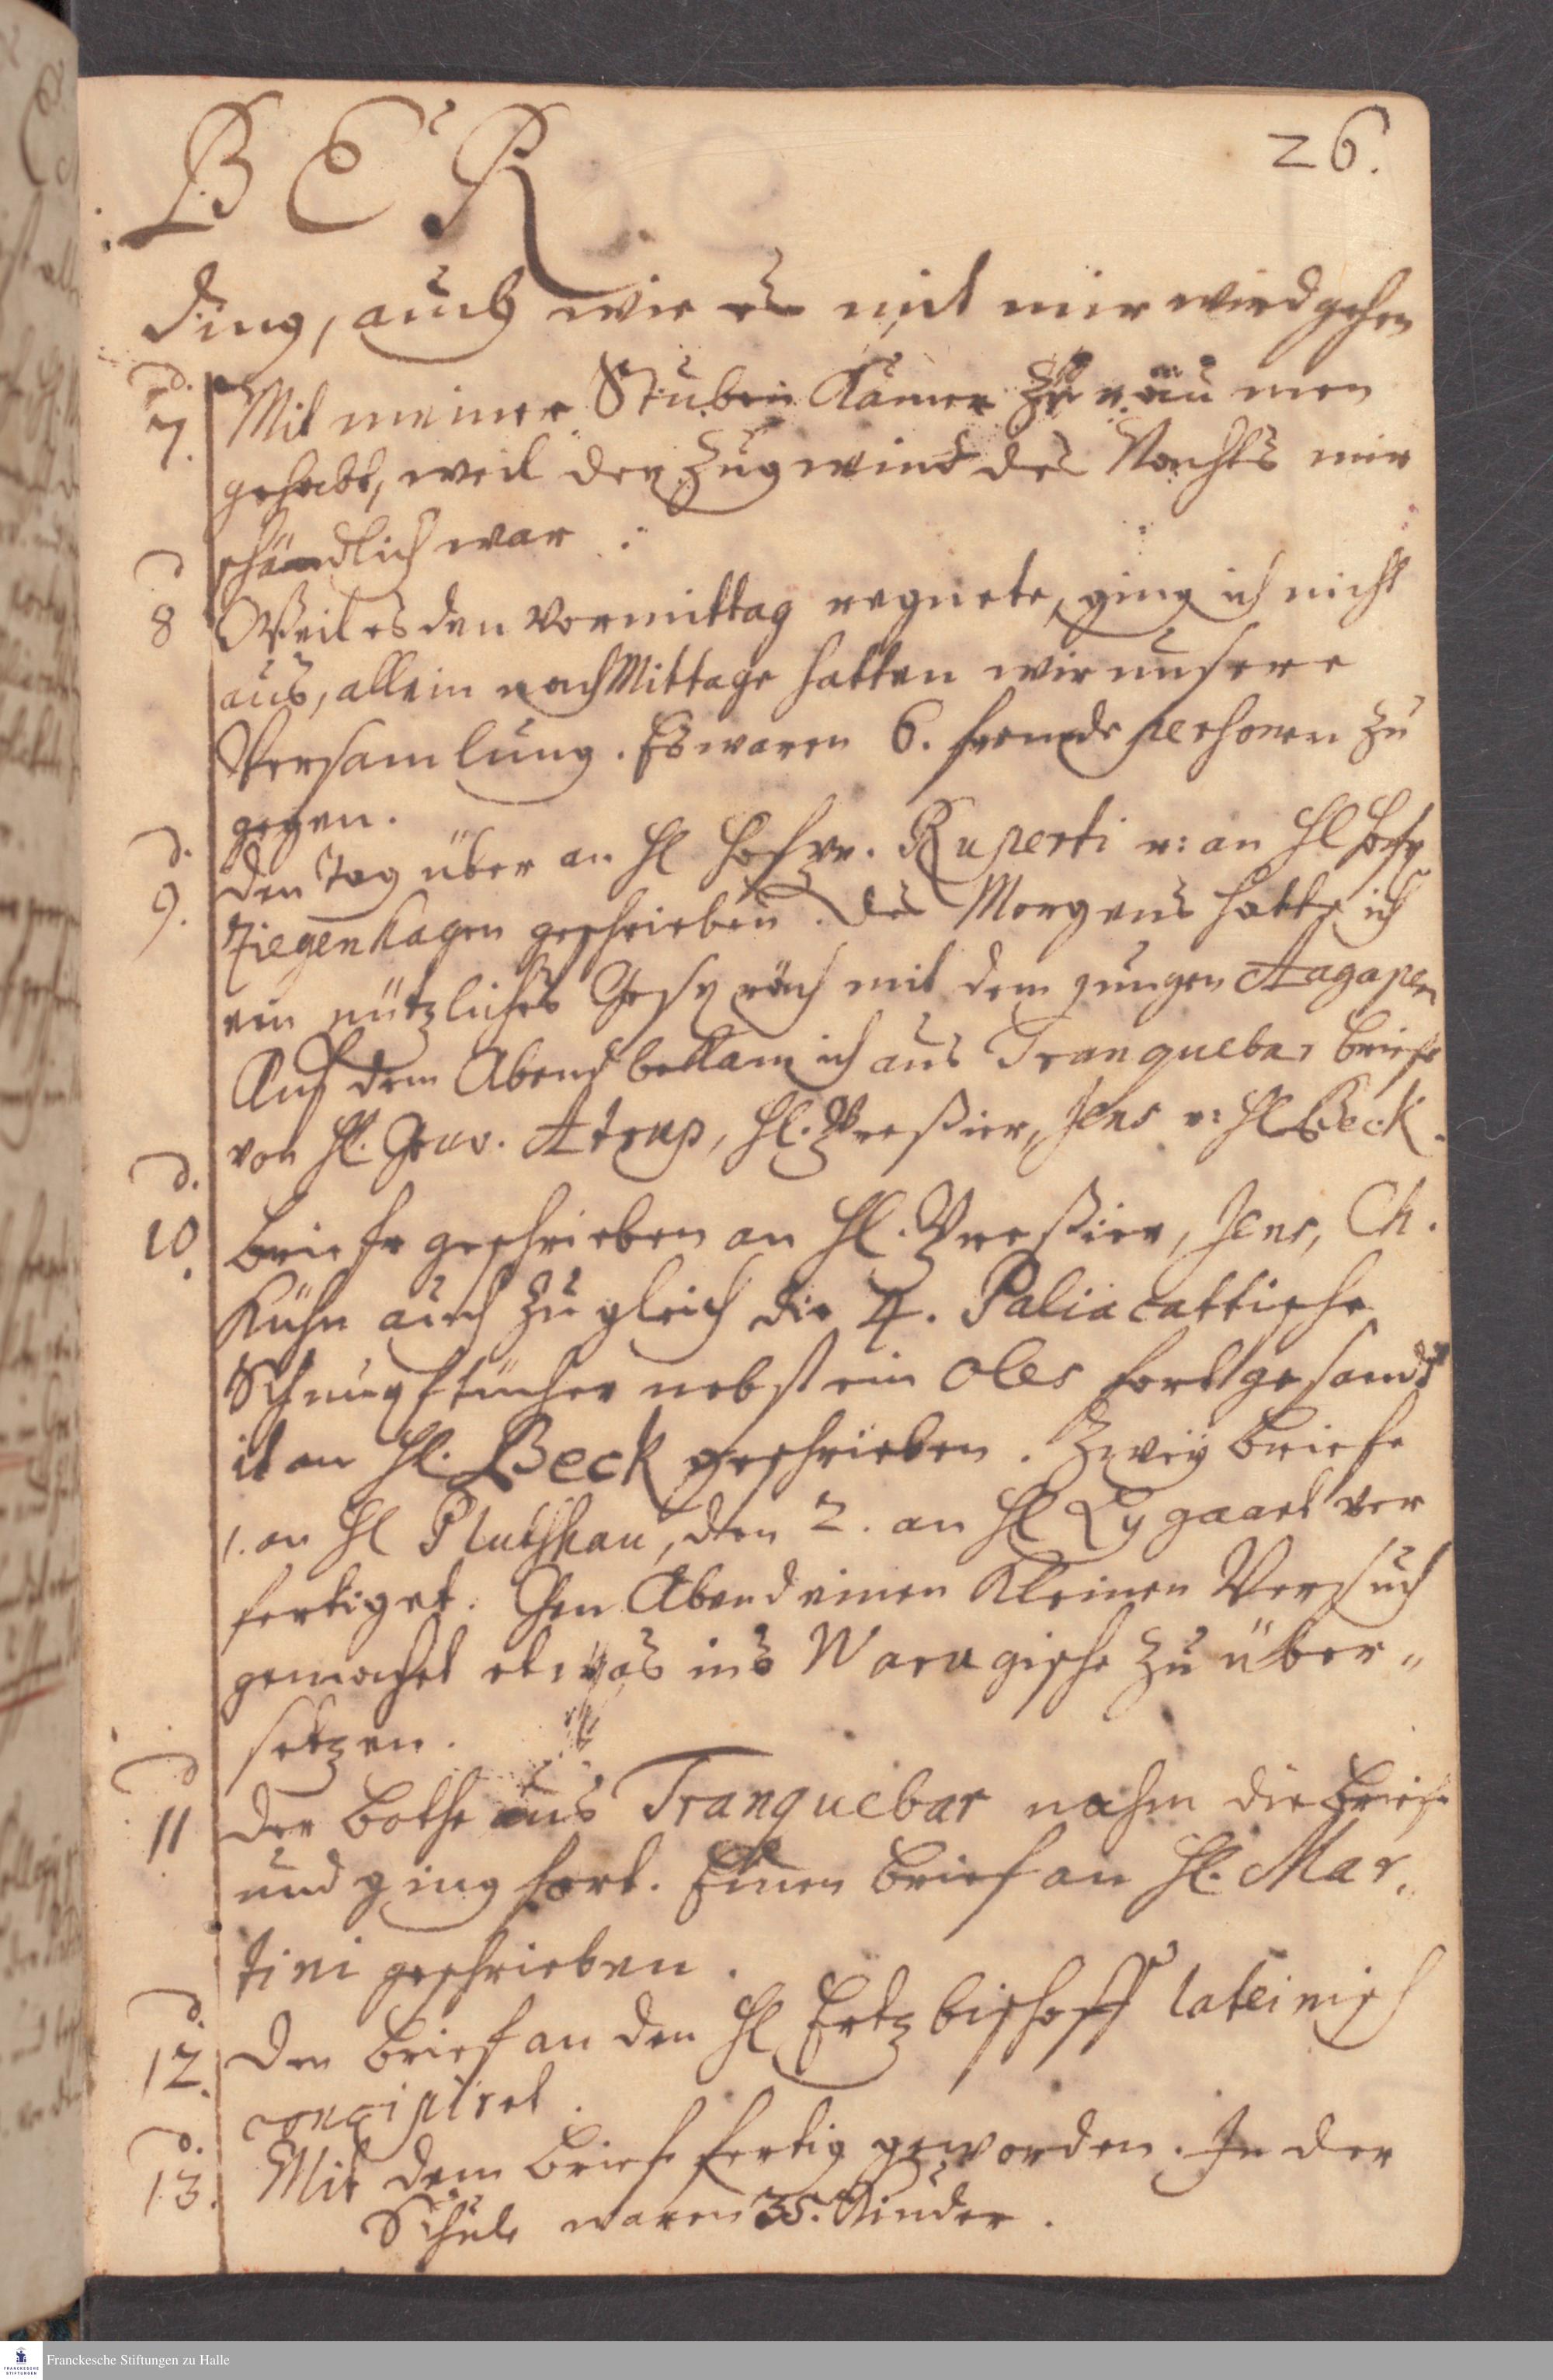 BER
26.
ding, auch wie es mit mir wird gehen
d. 7. Mit meiner Stuben Kamer zu räumen
gehabt, weil der Zugwind des Nachts mir
schändlich war.
d 8 Weil es den Vormittag regnete, ging ich nicht
aus, allein nachMittage hatten wir unsere
Versamlung. Es waren 6. fremde personen zu
gegen.
d. 9. den Tag über an Hl Hofpr. Ruperti u: an Hl Hofp
Ziegenhagen geschrieben. des Morgens hatte ich
ein nützliches Gespräch mit dem jungen Aagapen
Auf dem Abend bekam ich aus Tranquebar briefe
von Hl. Guv. Atrup, Hl. Preßier, Jens u: Hl Beck.
d. 10. briefe geschrieben an Hl. Preßier, Jens, Ch.
Kühn auch zugleich die 4. Paliacattische
Schnupftücher nebst ein Oles fortgesandt
it an Hl. Beck geschrieben. Zweÿ briefe
1. an Hl Plutschau, den 2. an Hl Lygaard ver
fertiget. Gen Abend einen Kleinen Versuch
gemachet etwas ins Warugische zu über„
setzen.
d 11 der bothe aus Tranquebar nahm die briefe
und ging fort. Einen brief an Hl. Mar„
tini geschrieben.
d. 12. den brief an den Hl Ertzbischoff lateinisch
concipiret.
d. 13. Mit dem briefe fertig geworden. In der
Schule waren 35. Kinder.
Franckesche Stiftungen zu Halle